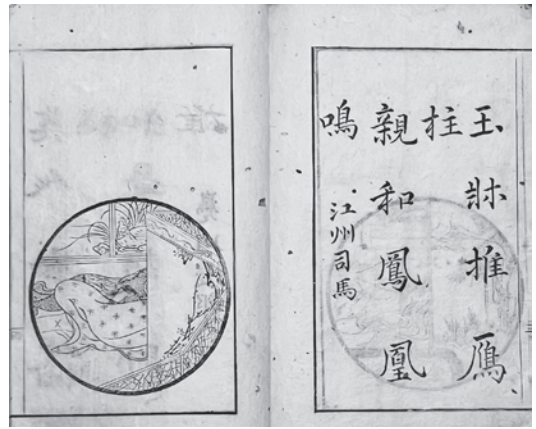 玉牀推鴈
柱
親和鳳凰
鳴
江州司馬